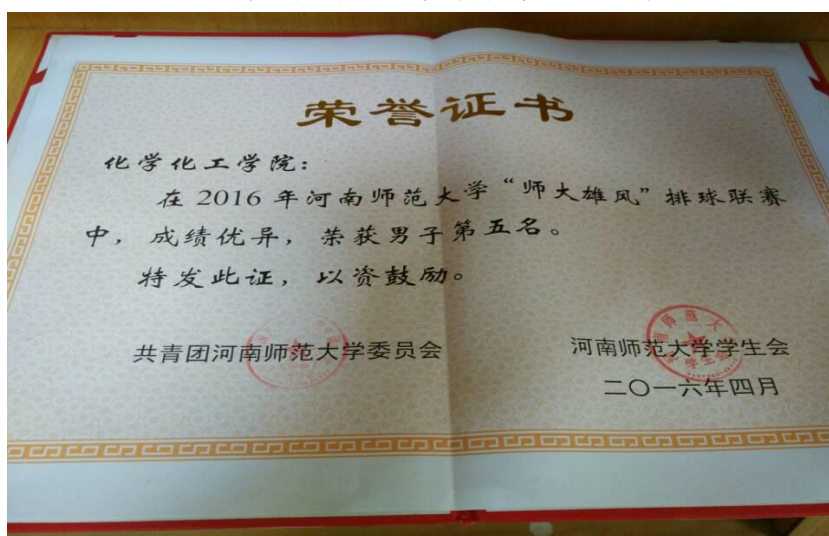 荣誉证书
化学化工学院：
在2016年河南师范大学“师大雄风”排球联赛
中，成绩优异，荣获男子第五名。
特发此证，以资鼓励。
共青团河南师范大学委员会
河南师范大学学生会
二〇一六年四月